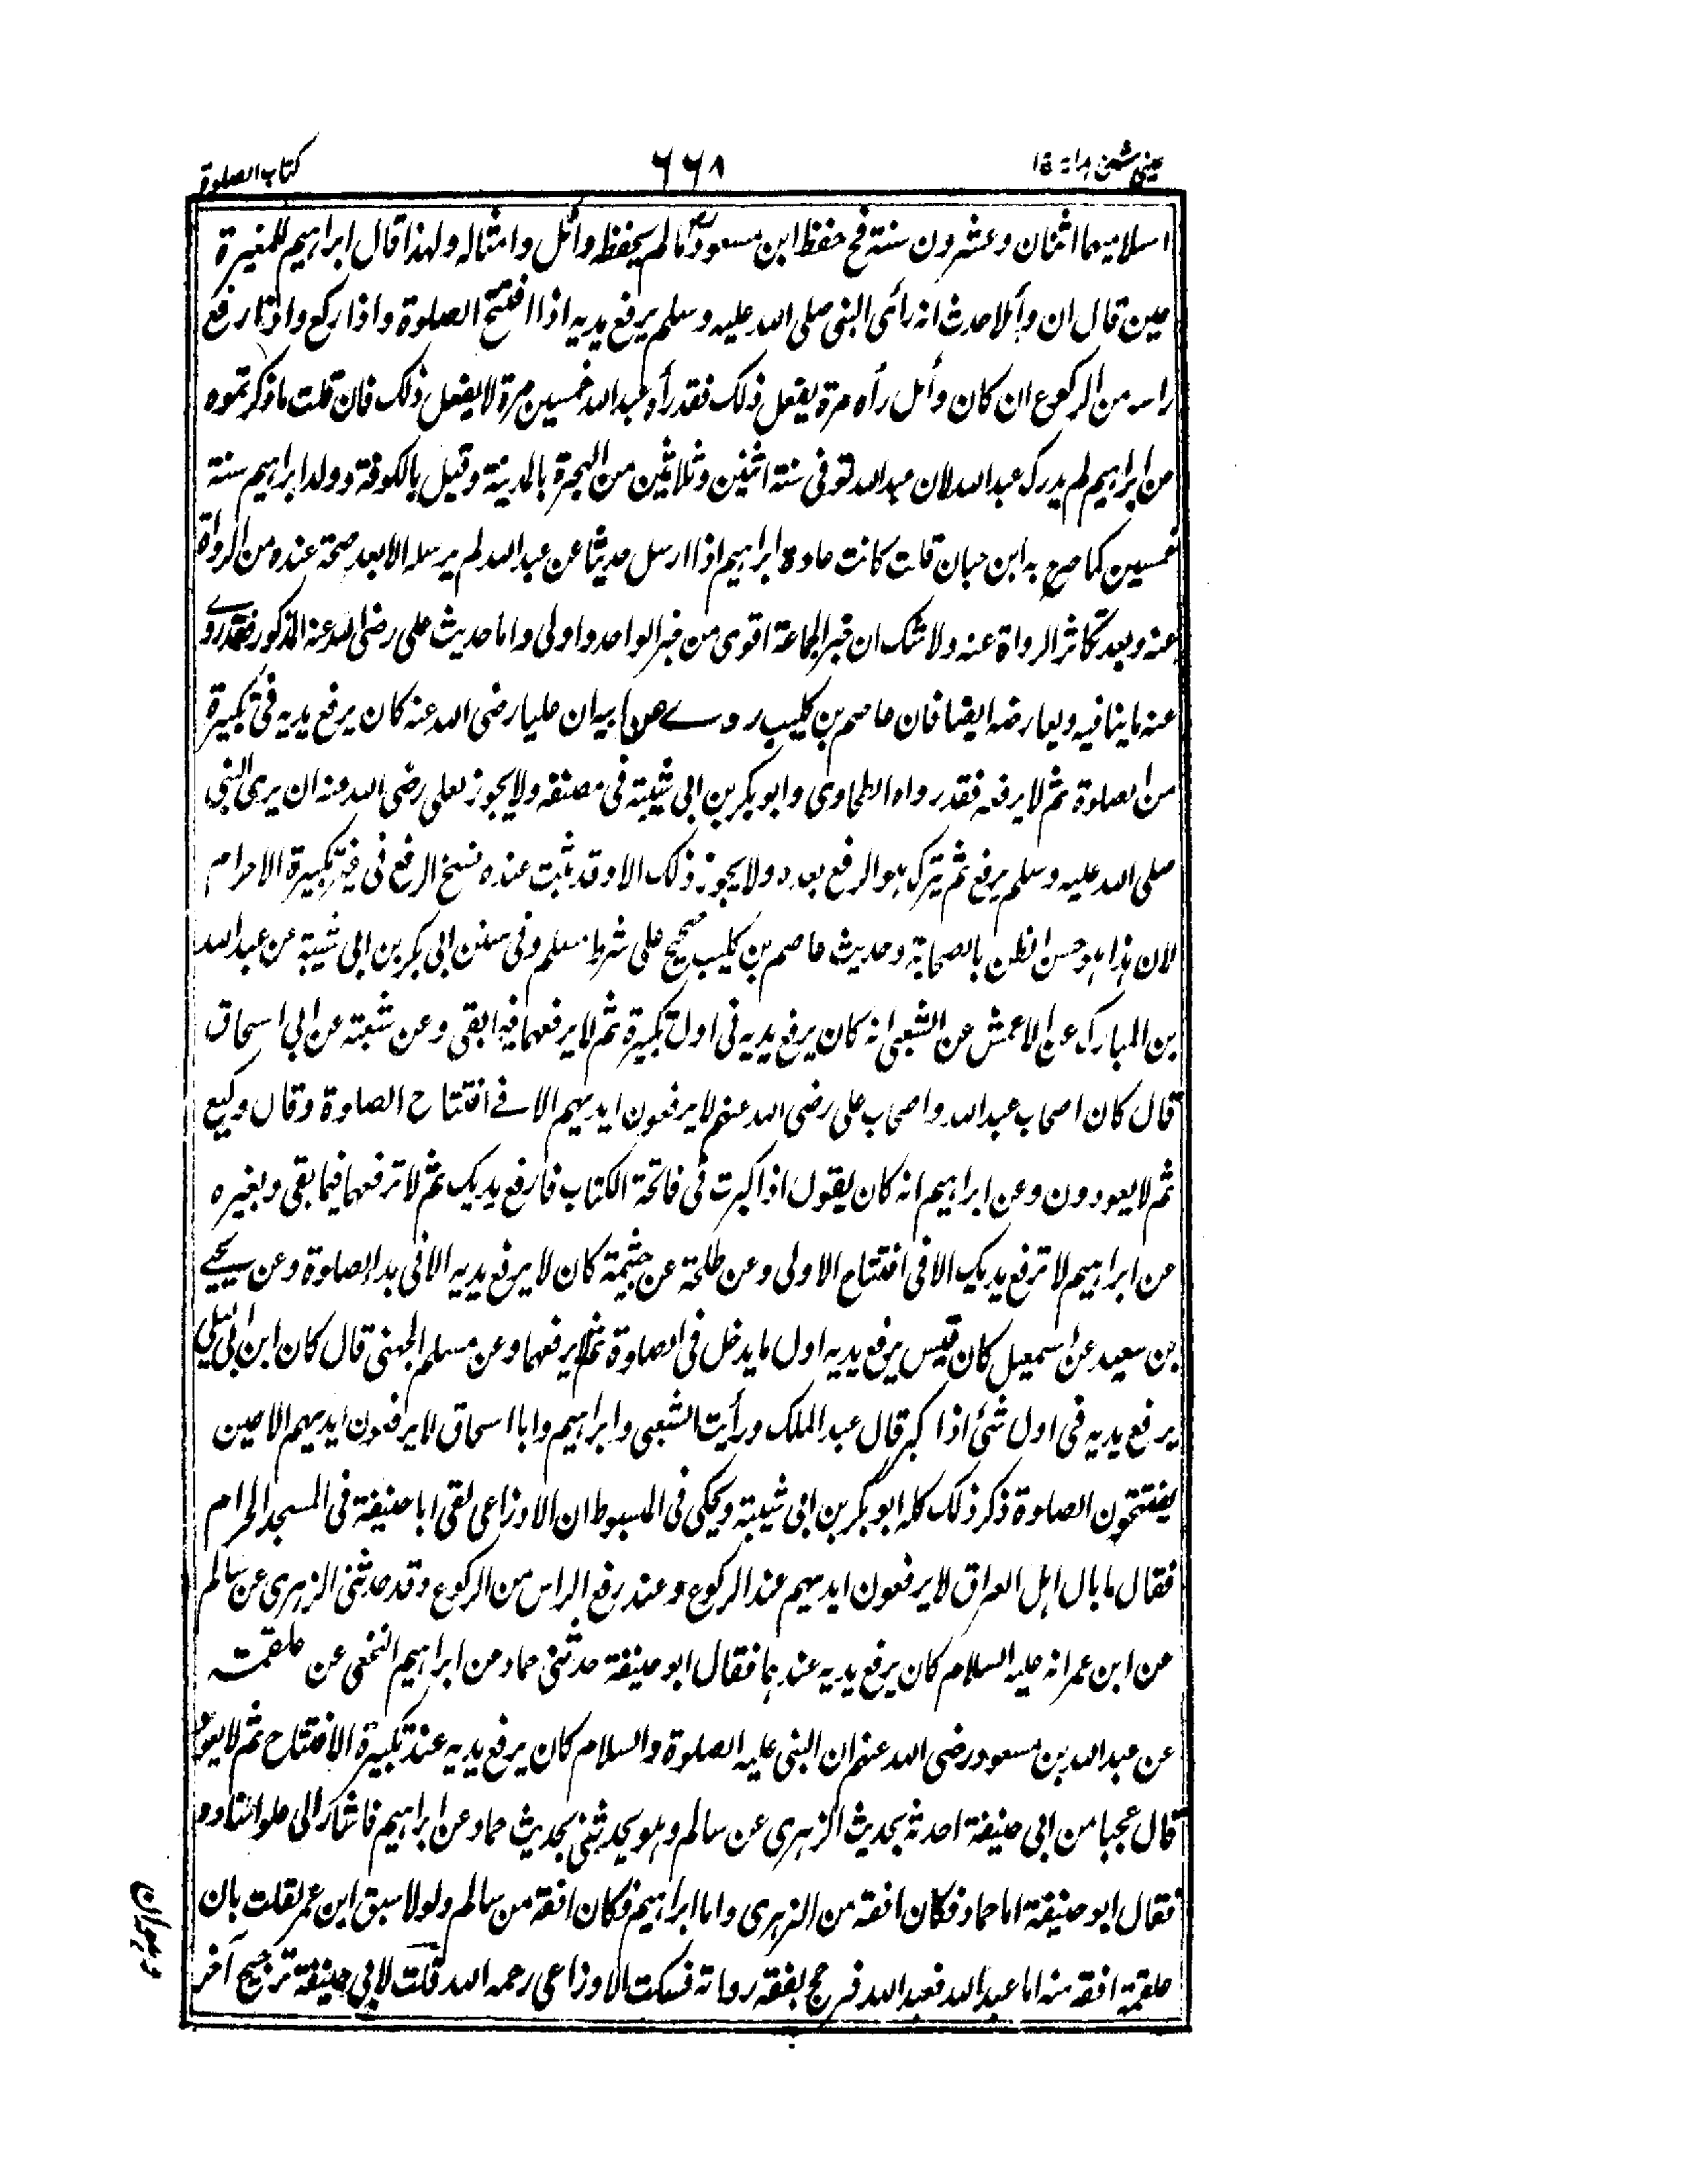 عینی شرح هدایة ٦٦٨ كتاب الصلوة
اسلاميهما اثنان وعشرون سنة فح حفظ ابن مسعود رض مالم يحفظ وائل وامثاله ولهذا قال ابراهيم للمغيرة
حين قال ان وائلا حدث انه رأى النبي صلى الله عليه وسلم يرفع يديه اذا افتتح الصلوة واذا ركع واذا رفع
راسه من الركوع ان كان وائل رأه مرة يفعل ذلك فقد رأه عبد الله خمسين مرة لا يفعل ذلك فان قلت ما ذكرتموه
من ابراهيم لم يدرك عبد الله لان عبد الله توفى سنة اثنين وثلاثين من الهجرة بالمدينة وقيل بالكوفة وولد ابراهيم سنة
خمسين كما صرح به ابن حبان قلت كانت عادة ابراهيم اذا ارسل حديثا عن عبد الله لم يرسله الا بعد صحة عنده من الرواة
عنه وبعد تكاثر الرواة عنه ولا شك ان خبر الجماعة اقوى من خبر الواحد واولى واما حديث على رضى الله عنه المذكور فقد روے
عنه ما ينافيه ويعارضه ايضا فان عاصم بن كليب روے عن ابيه ان عليا رضى الله عنه كان يرفع يديه فى تكبيرة
من الصلوة ثم لا يرفعه فقد رواه الطحاوى وابو بكر بن ابى شيبة فى مصنفه ولا يجوز لعلى رضى الله عنه ان يرى النبى
صلى الله عليه وسلم يرفع ثم يترك هو الرفع بعده ولا يجوز ذلك الا وقد ثبت عنده نسخ الرفع فى غير تكبيرة الاحرام
لان هذا هو حسن الظن بالصحابة وحديث عاصم بن كليب صحيح على شرط مسلم وفى سنن ابى بكر بن ابى شيبة عن عبد الله
بن المبارك عن الاعمش عن الشعبى انه كان يرفع يديه فى اول تكبيرة ثم لا يرفعهما فيما بقى وعن شعبة عن ابى اسحاق
قال كان اصحاب عبد الله واصحاب على رضى الله عنهم لا يرفعون ايديهم الا فے افتتاح الصلوة وقال وكيع
ثم لا يعودون وعن ابراهيم انه كان يقول اذا كبرت فى فاتحة الكتاب فارفع يديك ثم لا ترفعهما فيما بقى وبغيره
عن ابراهيم لا ترفع يديك الا فى افتتاح الاولى وعن طلحة عن خيثمة كان لا يرفع يديه الا فى بدا الصلوة وعن يحيے
بن سعيد عن اسمعيل كان قيس يرفع يديه اول ما يدخل فى الصلوة ثم لا يرفعهما وعن مسلم الجهنى قال كان ابن ابى ليلى
يرفع يديه فى اول شئ اذا كبر قال عبد الملك ورأيت الشعبى وابراهيم وابا اسحاق لا يرفعون ايديهم الا حين
يفتتحون الصلوة ذكر ذلك كله ابو بكر بن ابى شيبة ويحكى فى المبسوط ان الاوزاعى لقى ابا حنيفة فى المسجد الحرام
فقال ما بال اهل العراق لا يرفعون ايديهم عند الركوع وعند رفع الراس من الركوع وقد حدثنى الزهرى عن سالم
عن ابن عمر انه عليه السلام كان يرفع يديه عندهما فقال ابو حنيفة حدثنى حماد عن ابراهيم النخعى عن علقمة
عن عبد الله بن مسعود رضى الله عنهم ان النبى عليه الصلوة والسلام كان يرفع يديه عند تكبيرة الافتتاح ثم لا يعود
قال عجبا من ابى حنيفة احدثه بحديث الزهرى عن سالم وهو يحدثنى بحديث حماد عن ابراهيم فاشار الى علو اسناده
فقال ابو حنيفة اما حماد فكان افقه من الزهرى واما ابراهيم فكان افقه من سالم ولولا سبق ابن عمر لقلت بان
علقمة افقه منه اما عبد الله فعبد الله فرجح بفقه رواته فسكت الاوزاعى رحمه الله قلت لابى حنيفة ترجيح آخر